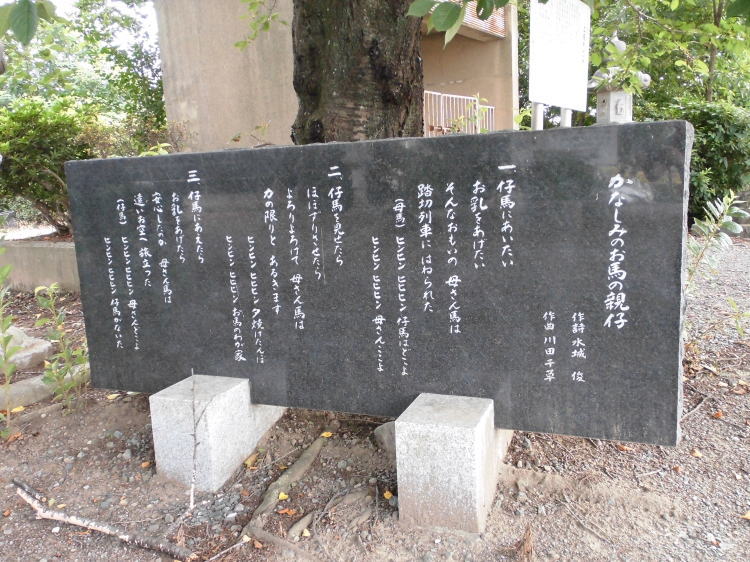 かなしみのお馬の親仔
作詩 水城 俊
作曲 川田千草
一、仔馬にあいたい
お乳をあげたい
そんなおもいの 母さん馬は
踏切列車に はねられた
(母馬) ヒンヒン ヒヒヒン 仔馬はどこよ
ヒンヒン ヒヒヒン 母さんここよ
二、仔馬を見せたら
ほほずりさせたら
よろりよろけて 母さん馬は
力の限りと あるきます
ヒンヒン ヒヒヒン 夕焼けたんは
ヒンヒン ヒヒヒン お馬のわが家
三、仔馬にあえたら
お乳をあげたら
安心したのか 母さん馬は
遠いお空へ 旅立った
(仔馬) ヒンヒン ヒヒヒン 母さんどこよ
ヒンヒン ヒヒヒン 仔馬がないた